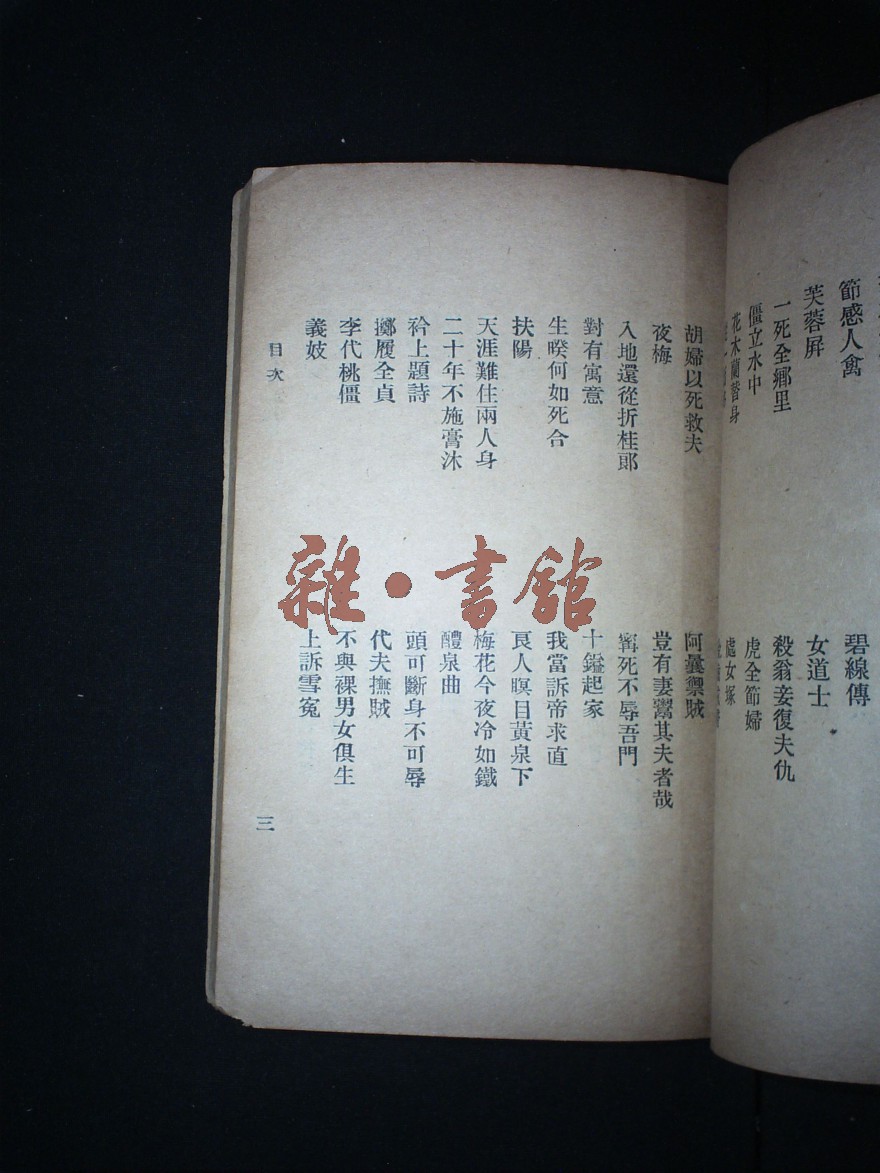 節感人禽
芙蓉屏
一死全鄉里
僵立水中
花木蘭替身
碧線傳
女道士
殺翁妾復夫仇
虎全節婦
處女塚
胡婦以死救夫
夜梅
入地還從折桂郞
對有寓意
生暌何如死合
扶陽
天涯難住兩人身
二十年不施膏沐
衿上題詩
擲履全貞
李代桃僵
義妓
阿曩禦賊
豈有妻鬻其夫者哉
寗死不辱吾門
十鎰起家
我當訴帝求直
良人瞑目黃泉下
梅花今夜冷如鐵
醴泉曲
頭可斷身不可辱
代夫撫賊
不與裸男女俱生
上訴雪寃
目次
三
雜·書館